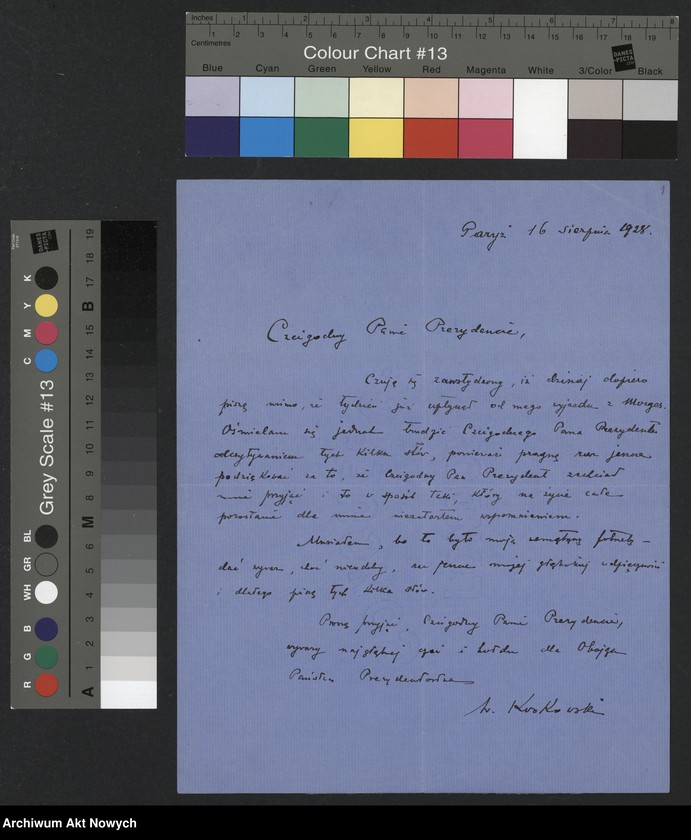 Inches 1 2 3 4 5 6 7 8
Centimetres 1 2 3 4 5 6 7 8 9 10 11 12 13 14 15 16 17 18 19
Colour Chart #13
DANES
PICTA
Blue Cyan Green Yellow Red Magenta White 3/Color Black
Grey Scale #13
DANES
PICTA
C M Y K
R G B WH GR BL
A 1 2 3 4 5 6 M 8 9 10 11 12 13 14 15 B 17 18 19
1
Paryż 16 sierpnia 1928.
Czcigodny Panie Prezydencie,
Czuję się zawstydzony, iż dzisiaj dopiero
piszę mimo, że tydzień już upłynął od mego wyjazdu z Morges.
Ośmielam się jednak trudzić Czcigodnego Pana Prezydenta
odczytywaniem tych kilku słów, ponieważ pragnę raz jeszcze
podziękować za to, że Czcigodny Pan Prezydent zechciał
mnie przyjąć i to w sposób taki, który na życie całe
pozostanie dla mnie niezatartem wspomnieniem.
Musiałem, bo to było moją wewnętrzną potrzebą –
dać wyraz, choć nieudolny, raz jeszcze mojej głębokiej wdzięczności
i dlatego piszę tych kilka słów.
Proszę przyjąć, Czcigodny Panie Prezydencie,
wyrazy najgłębszej czci i hołdu dla Obojga
Państwa Prezydentostwa
W. Koskowski
Archiwum Akt Nowych